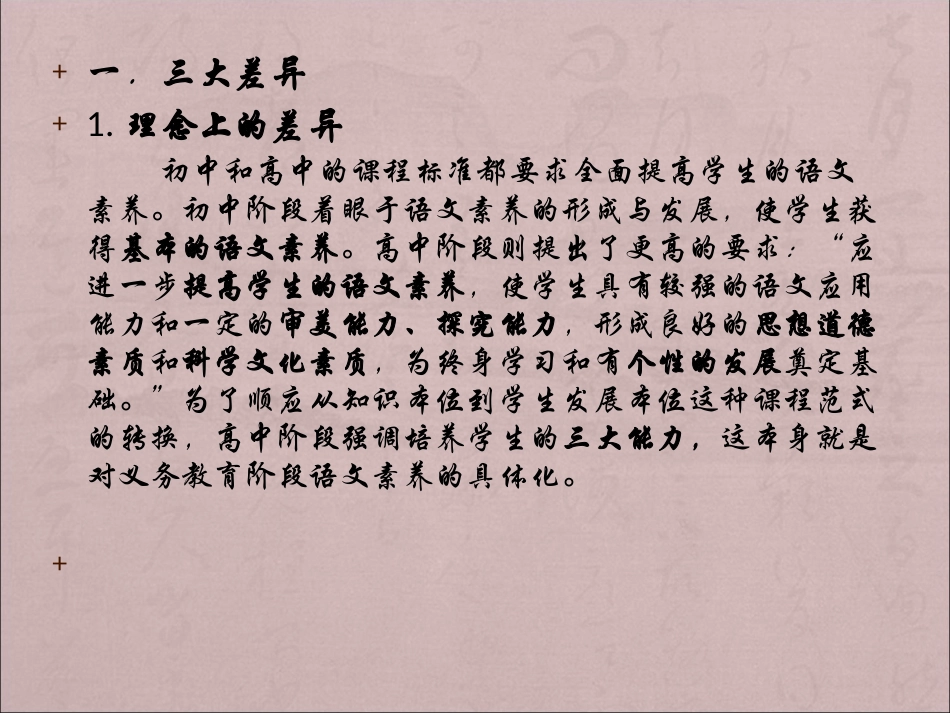 一．三大差异
1. 理念上的差异
初中和高中的课程标准都要求全面提高学生的语文
素养。初中阶段着眼于语文素养的形成与发展，使学生获
得基本的语文素养。高中阶段则提出了更高的要求：“应
进一步提高学生的语文素养，使学生具有较强的语文应用
能力和一定的审美能力、探究能力，形成良好的思想道德
素质和科学文化素质，为终身学习和有个性的发展奠定基
础。”为了顺应从知识本位到学生发展本位这种课程范式
的转换，高中阶段强调培养学生的三大能力，这本身就是
对义务教育阶段语文素养的具体化。